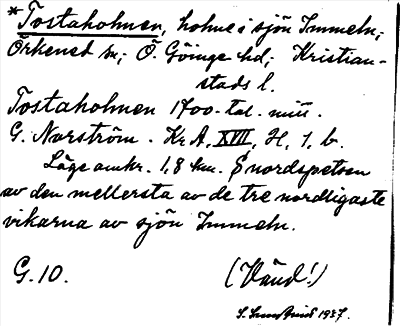 *Tostaholmen, holme i sjön Immeln;
Örkened sn; Ö. Göinge hd; Kristian-
stads l.
Tostaholmen 1700-tal. mitt.
G. Norström. Kr A, XVIII, H, 1, b.
Läge omkr. 1,8 km. S nordspetsen
av den mellersta av de tre nordligaste
vikarna av sjön Immeln.
G. 10. (Vänd!)
1937.